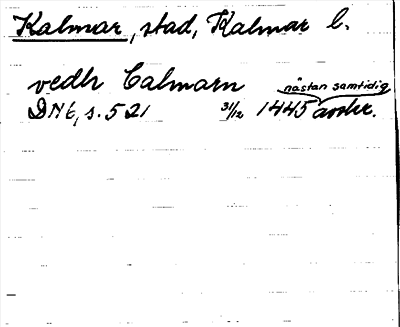 Kalmar, stad, Kalmar l.
vedh Calmarn
nästan samtidig
DN 6, s. 521 31/12 1445 avskr.